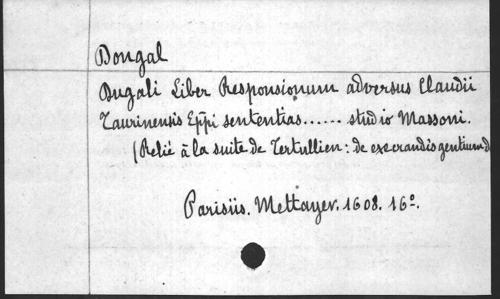 Dongal
Dugali Liber Responsionum adversus Claudii
Taurinensis Eppi sententias...... studio Massoni.
(Relié à la suite de Tertullien: de execrandis gentium d
Parisiis. Mettayer. 1608. 16º.